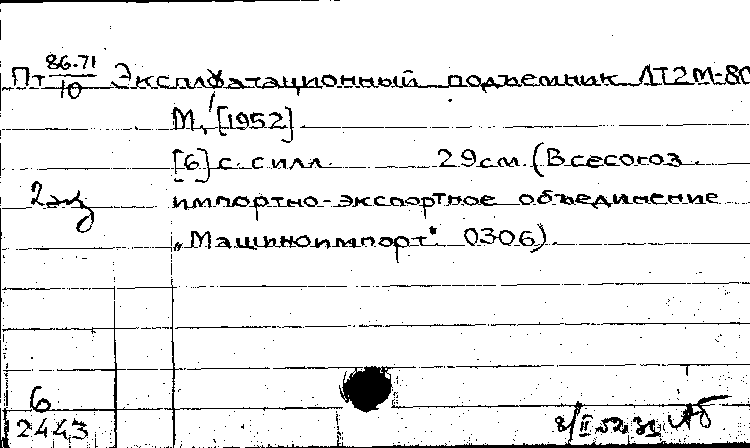 Пт 86-71/10 Эксплуатационный подъемник ЛТ2М-80
М, [1952].
[6] с. с илл. 29см. (Всесоюз.
2 экз импортно-экспортное объединение
„Машиноимпорт" 0306).
6
2443